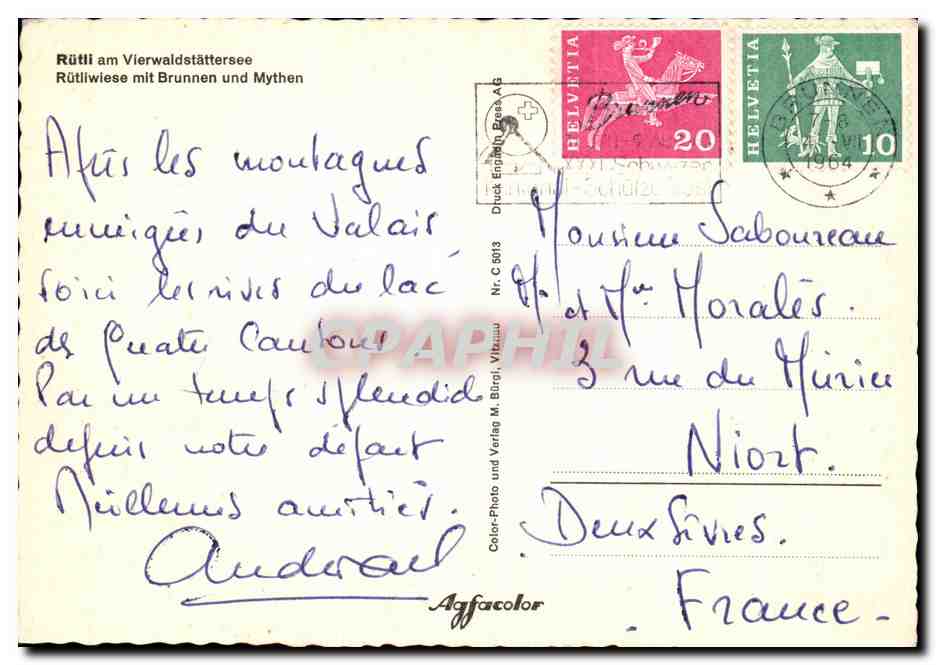 Rütli am Vierwaldstättersee
Rütliwiese mit Brunnen und Mythen
Après les montagnes
enneigées du Valais
voici les rives du lac
des Quatre Cantons
Par un temps splendide
depuis notre départ
Meilleures amitiés.
Color-Photo und Verlag M. Bürgl, Vitznau Nr. C 5013 Druck Engadin Press AG
Agfacolor
HELVETIA
20
HELVETIA
10
Brunnen
BRUNNEN
1964
Monsieur Saboureau
M. et Mme Moralès.
3 rue du Mûrier
Niort.
Deux Sèvres.
France.
CPAPHIL